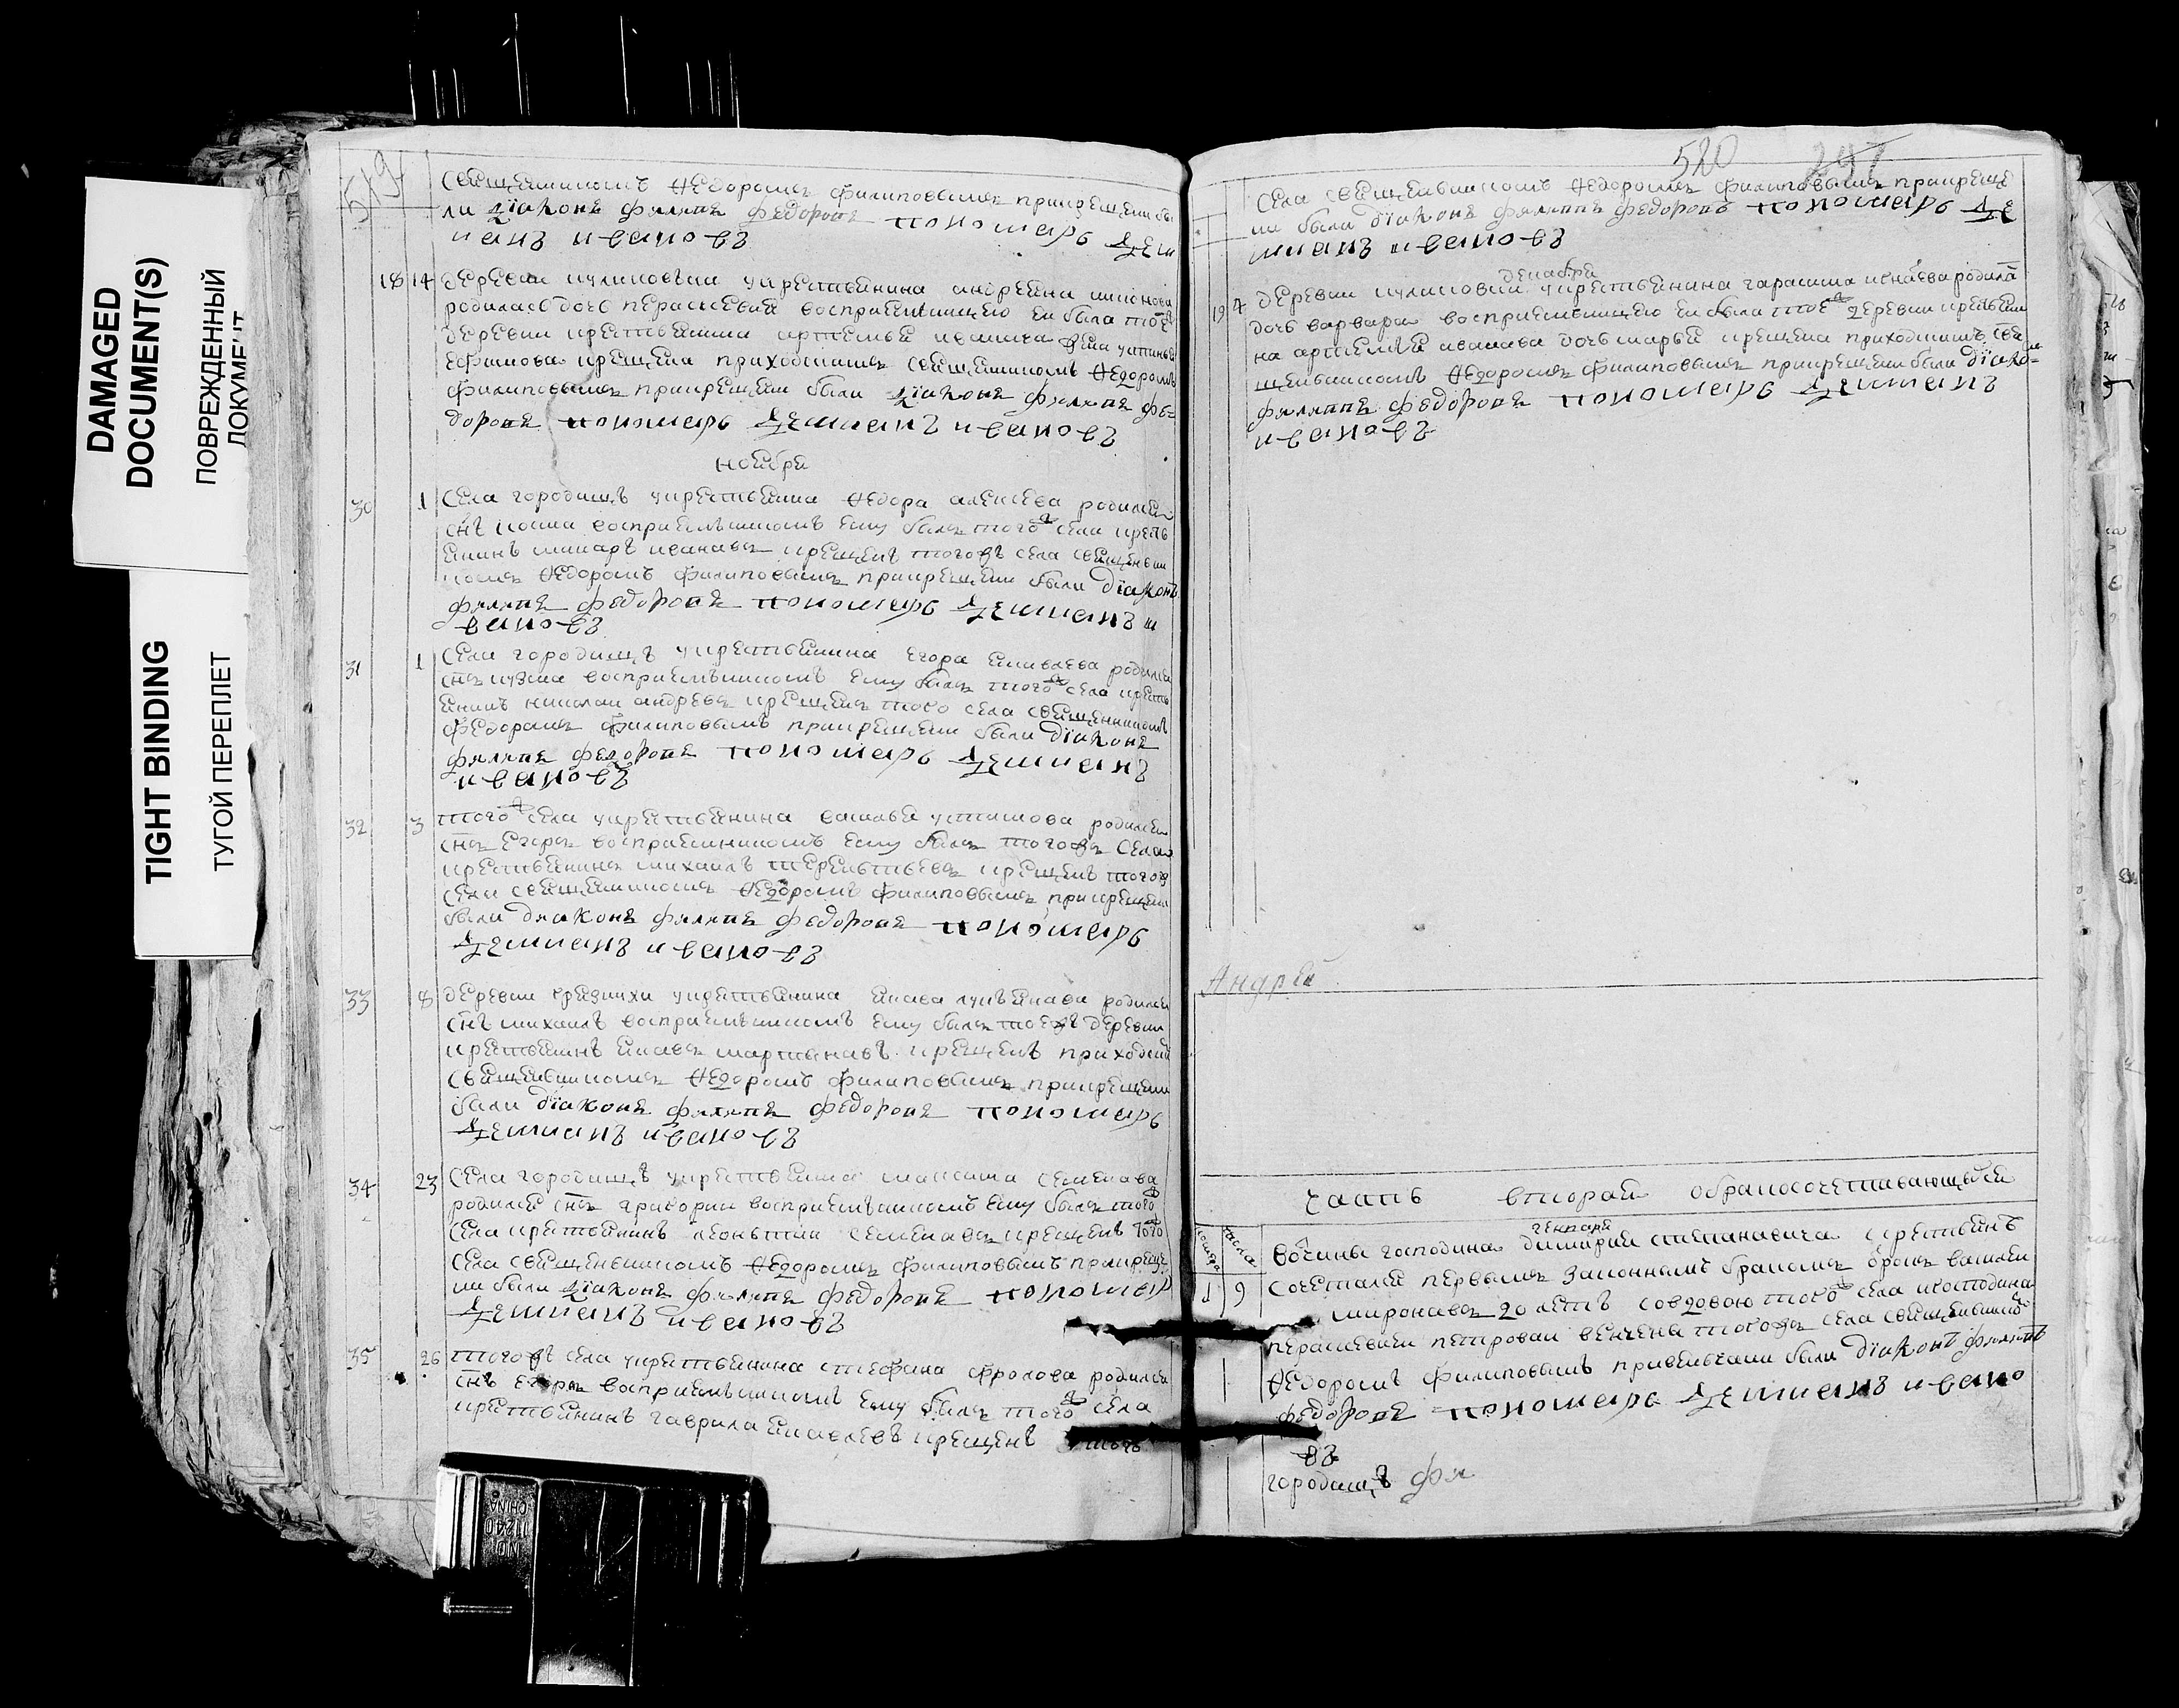 DAMAGED
DOCUMENT(S)
ПОВРЕЖДЕННЫЙ
ДОКУМЕНТ
TIGHT BINDING
ТУГОЙ ПЕРЕПЛЕТ
519
священникомъ Ѳедоромъ филиповымъ прикрещении бы
ли діаконъ филипъ федоровъ пономарь Дем
ианъ ивановъ
18 14 деревни укрестьянина андреяна
родилась дочь параскевия восприемницею еи была тоеж
деревни крестьянина артемья иванова жена устинья
ефимова крещена приходскимъ священникомъ Ѳедоромъ
филиповымъ прикрещении были діаконъ филипъ фе-
доровъ пономарь Демианъ ивановъ
ноября
30 1 села городищъ укрестьянина Ѳедора алексеева родился
снъ козма восприемникомъ ему былъ тогож села кресть
янинъ ивановъ крещенъ тогожъ села священни
комъ Ѳедоромъ филиповымъ прикрещении были діаконъ
филипъ федоровъ пономарь Демианъ и
вановъ
31 1 села городищъ укрестьянина егора родился
снъ кузма восприемникомъ ему былъ тогож села кресть
янинъ николаи андреевъ крещенъ того села священникомъ
Ѳедоромъ филиповымъ прикрещении были діаконъ
филипъ федоровъ пономарь Демианъ
ивановъ
32 3 тогож села укрестьянина василья родился
снъ егоръ восприемникомъ ему былъ тогожъ села
крестьянинъ михаилъ терентьевъ крещенъ тогож
села священникомъ Ѳедоромъ филиповымъ прикрещении
были диаконъ филипъ федоровъ пономарь
Демианъ ивановъ
33 8 деревни укрестьянина родился
снъ михаилъ восприемникомъ ему былъ тоежъ деревни
крестьянинъ мартынавъ крещенъ приходским
священникомъ Ѳедоромъ филиповымъ прикрещении
были діаконъ филипъ федоровъ пономарь
Демианъ ивановъ
34 23 села городищъ укрестьянина максима семенава
родился снъ григории восприемникомъ ему былъ тогож
села крестьянинъ леонътии семенавъ крещенъ того
села священникомъ Ѳедоромъ филиповымъ прикреще
ни были діаконъ филипъ федоровъ пономарь
Демианъ ивановъ
35 26 тогожъ села укрестьянина стефана фролова родился
снъ егоръ восприемникомъ ему былъ тогож села
крестьянинъ гаврила крещенъ тогож
520 297
села священникомъ Ѳедоромъ филиповымъ прикреще
ни были діаконъ филипъ федоровъ пономарь Де
мианъ ивановъ
декабря
19 4 деревни укрестьянина гарасима исаева родила
дочь варвара восприемницею еи была тоеж деревни крестьяни
на артемья иванава дочь марья крещена приходскимъ свя
щенникомъ Ѳедоромъ филиповымъ прикрещении были діако-
филипъ федоровъ пономарь Демианъ
ивановъ
Андрей
часть вторая обракосочетавающыхся
генваря
вочины господина димитрия степанавича крестьянъ
1 9 сочетался первымъ законнымъ бракомъ отрокъ василеи
миронавъ 20 летъ совдовою тогож села
параскевиеи петровои венчены тогожъ села священником
Ѳедоромъ филиповымъ привенчании были діаконъ филипъ
федоровъ пономарь Демианъ ивано
въ
городищъ фи